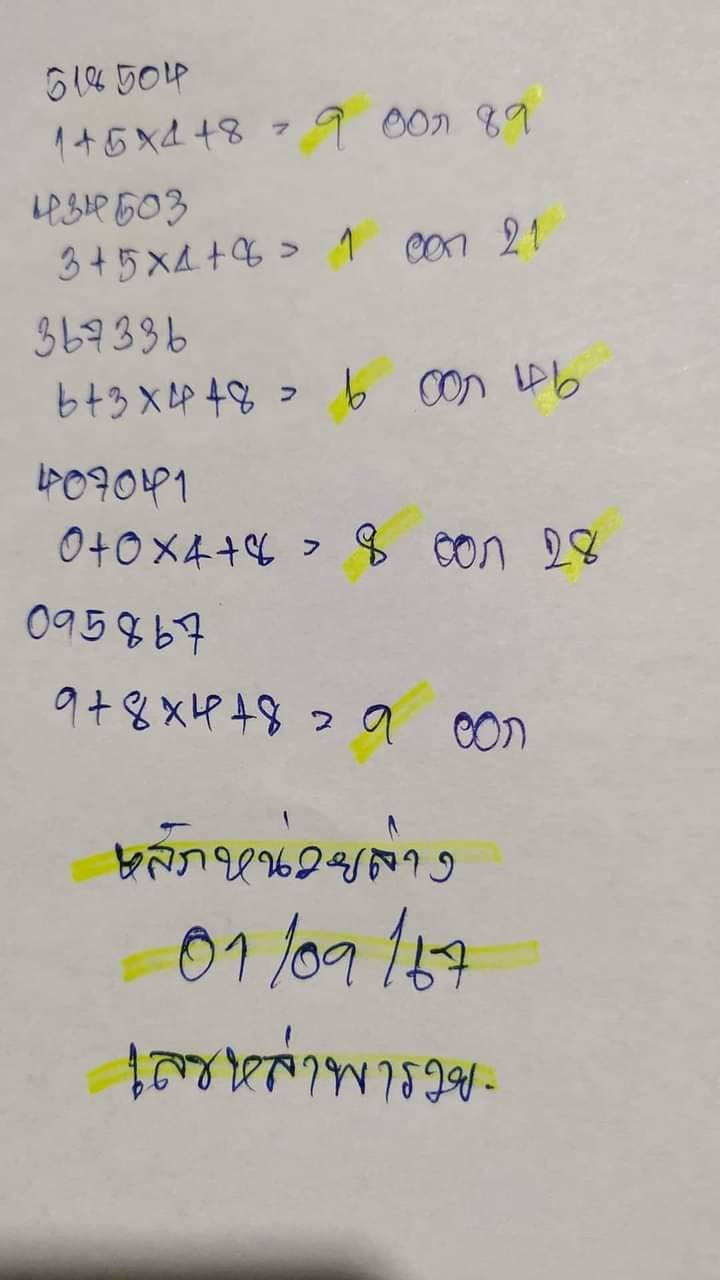 518504
1+5×4+8 = 9 ออก 89
434503
3+5×4+8 = 1 ออก 21
367336
6+3×4+8 = 6 ออก 46
407041
0+0×4+8 = 8 ออก 28
095867
9+8×4+8 = 9 ออก
หลักหน่วยล่าง
01/09/67
เลขหล่าพารวย.